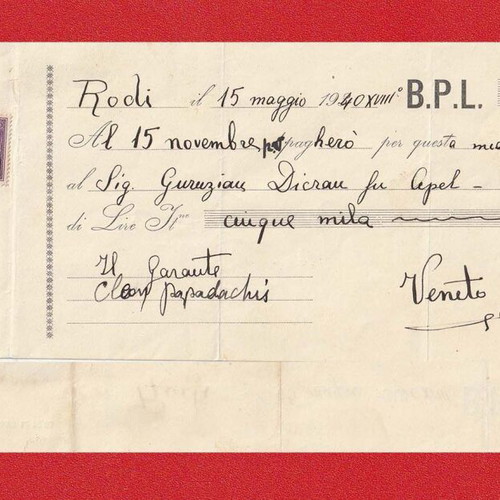 Rodi il 15 maggio 1940 XVIII° B.P.L.
Al 15 novembre pagherò per questa
al Sig. Guruzian Dicran fu Apel -
di Lire It.ne cinque mila
Il Garante
Cleon Papadachis
Veneto